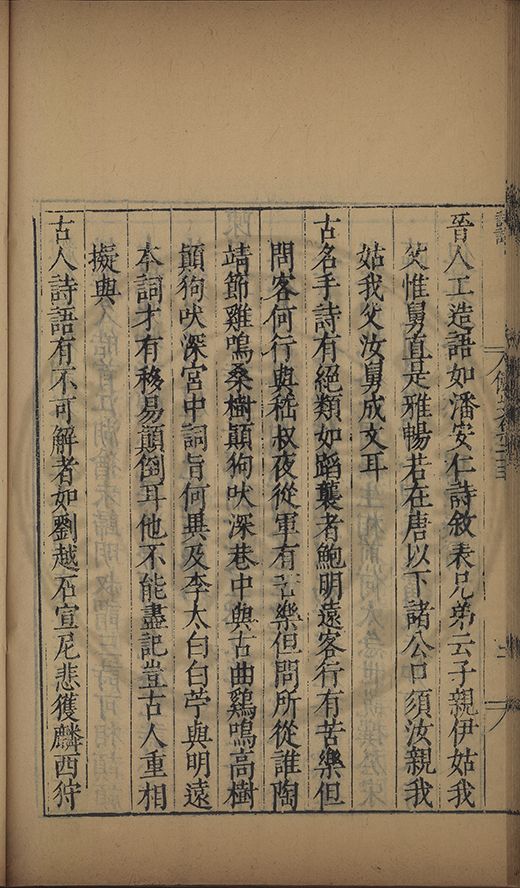 晉人工造語如潘安仁詩敘表兄弟云子親伊姑我
父惟舅直是雅暢若在唐以下諸公口須汝親我
姑我父汝舅成文耳
古名手詩有絕類如蹈襲者鮑明遠客行有苦樂但
問客何行與嵇叔夜從軍有苦樂但問所從誰陶
靖節雞鳴桑樹顛狗吠深巷中與古曲鷄鳴高樹
顛狗吠深宮中詞旨何異及李太白白苧與明遠
本詞才有移易顛倒耳他不能盡記豈古人重相
擬與
古人詩語有不可解者如劉越石宣尼悲獲麟西狩